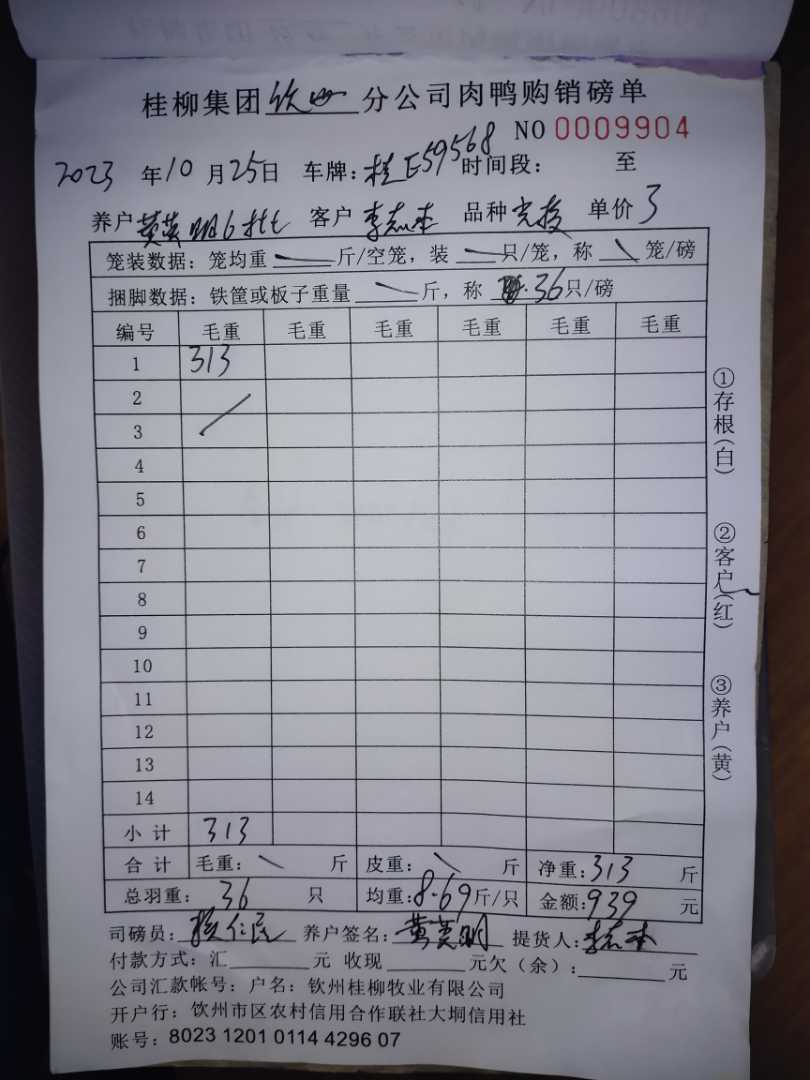 桂柳集团钦州分公司肉鸭购销磅单
NO 0009904
2023年10月25日 车牌:桂E59568 时间段: 至
养户 黄英明6批 客户 李志本 品种 单价 3
笼装数据:笼均重 斤/空笼,装 只/笼,称 笼/磅
捆脚数据:铁筐或板子重量 斤,称 36只/磅
编号 毛重 毛重 毛重 毛重 毛重 毛重
1 313
2
3
4
5
6
7
8
9
10
11
12
13
14
小计 313
合计 毛重: 斤 皮重: 斤 净重:313 斤
总羽重: 36 只 均重:8.69斤/只 金额:939 元
司磅员: 养户签名:黄英明 提货人:李志本
付款方式:汇 元 收现 元欠(余): 元
公司汇款帐号:户名:钦州桂柳牧业有限公司
开户行:钦州市区农村信用合作联社大垌信用社
账号:8023 1201 0114 4296 07
①存根(白)
②客户(红)
③养户(黄)